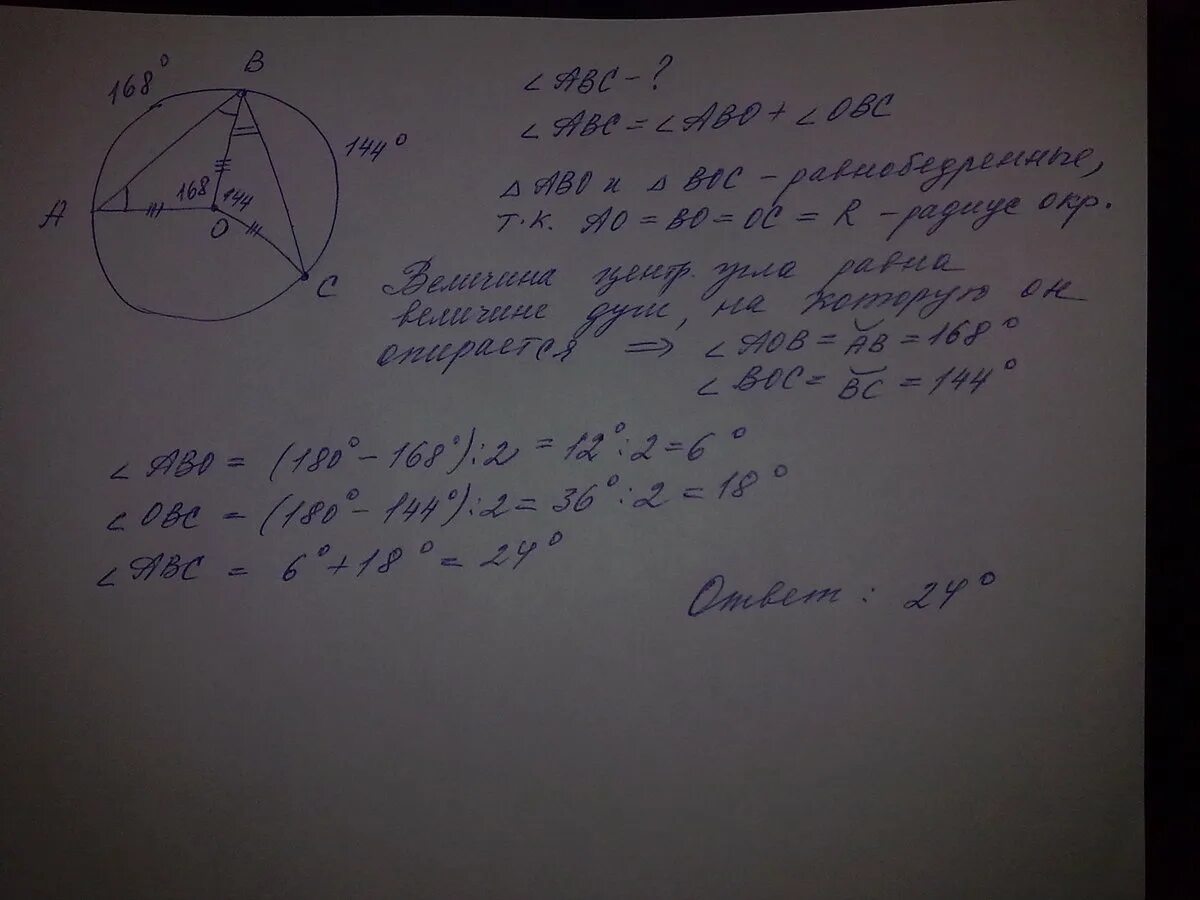 168°
B
144°
A
168
144
O
C
∠ABC - ?
∠ABC = ∠ABO + ∠OBC
△ABO и △BOC - равнобедренные,
т.к. AO = BO = OC = R - радиус окр.
Величина центр. угла равна
величине дуги, на которую он
опирается ⇒ ∠AOB = ◡AB = 168°
∠BOC = ◡BC = 144°
∠ABO = (180° - 168°) : 2 = 12° : 2 = 6°
∠OBC = (180° - 144°) : 2 = 36° : 2 = 18°
∠ABC = 6° + 18° = 24°
Ответ : 24°